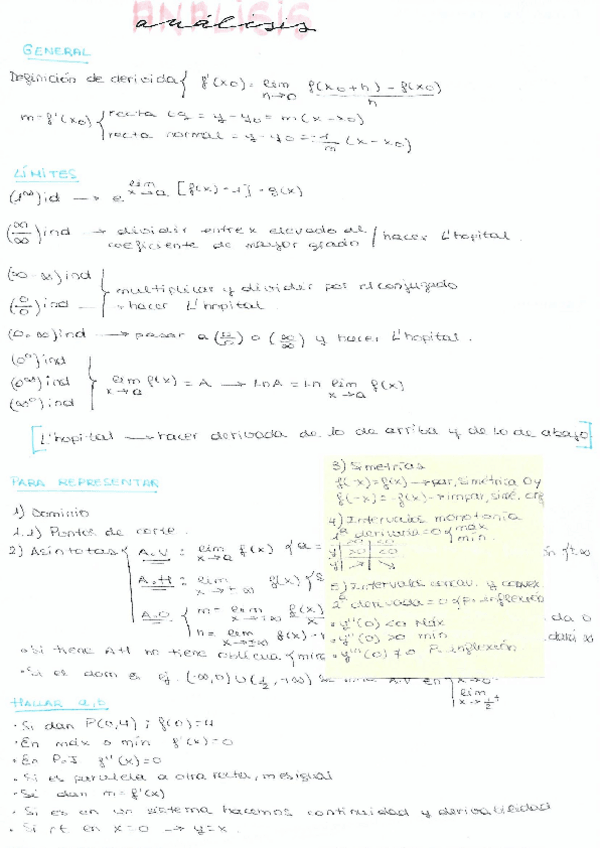 ANÁLISIS
análisis
GENERAL
Definición de derivida { f'(x0) = lim h→0 f(x0+h) - f(x0) / h
m = f'(x0) { recta tg = y - y0 = m(x - x0)
recta normal = y - y0 = -1/m (x - x0)
LÍMITES
(1^∞) id → e^lim x→a [f(x) - 1] · g(x)
(∞/∞) ind → dividir entre x elevado al
coeficiente de mayor grado / hacer L'hopital.
(∞-∞) ind } multiplicar y dividir por el conjugado
(0/0) ind → hacer L'hopital.
(0·∞) ind → pasar a (0/0) o (∞/∞) y hacer L'hopital.
(0^0) ind
(0^∞) ind } lim x→a f(x) = A → ln A = ln lim x→a f(x)
(∞^0) ind
[L'hopital → hacer derivada de lo de arriba y de lo de abajo]
PARA REPRESENTAR
1) Dominio
1.1) Puntos de corte.
2) Asíntotas { A.V: lim x→a f(x)
A.H: lim x→±∞ f(x)
A.O: m = lim x→±∞ f(x)/x
n = lim x→±∞ f(x) -
• Si tiene AH no tiene oblicua
• Si es dom es ej. (-∞,0) ∪ (1/2, +∞)
lim x→1/2+
3) Simetrías
f(-x) = f(x) → par, simétrica Oy
f(-x) = -f(x) → impar, simé.
4) Intervalos monotonía
1ª derivada = 0 { max
min.
y' >0 <0
y
5) Intervalos concav. y convex
2ª derivada = 0 { P. inflexión
• y''(0) < 0 Máx
• y''(0) > 0 min
• y'''(0) ≠ 0 P. inflexión
HALLAR a, b
• Si dan P(0,4) ; f(0) = 4
• En máx o mín f'(x) = 0
• En P.I f''(x) = 0
• Si es paralela a otra recta, m es igual
• Si dan m = f'(x)
• Si es en un sistema hacemos continuidad y derivabilidad
• Si pt en x = 0 → y = x.